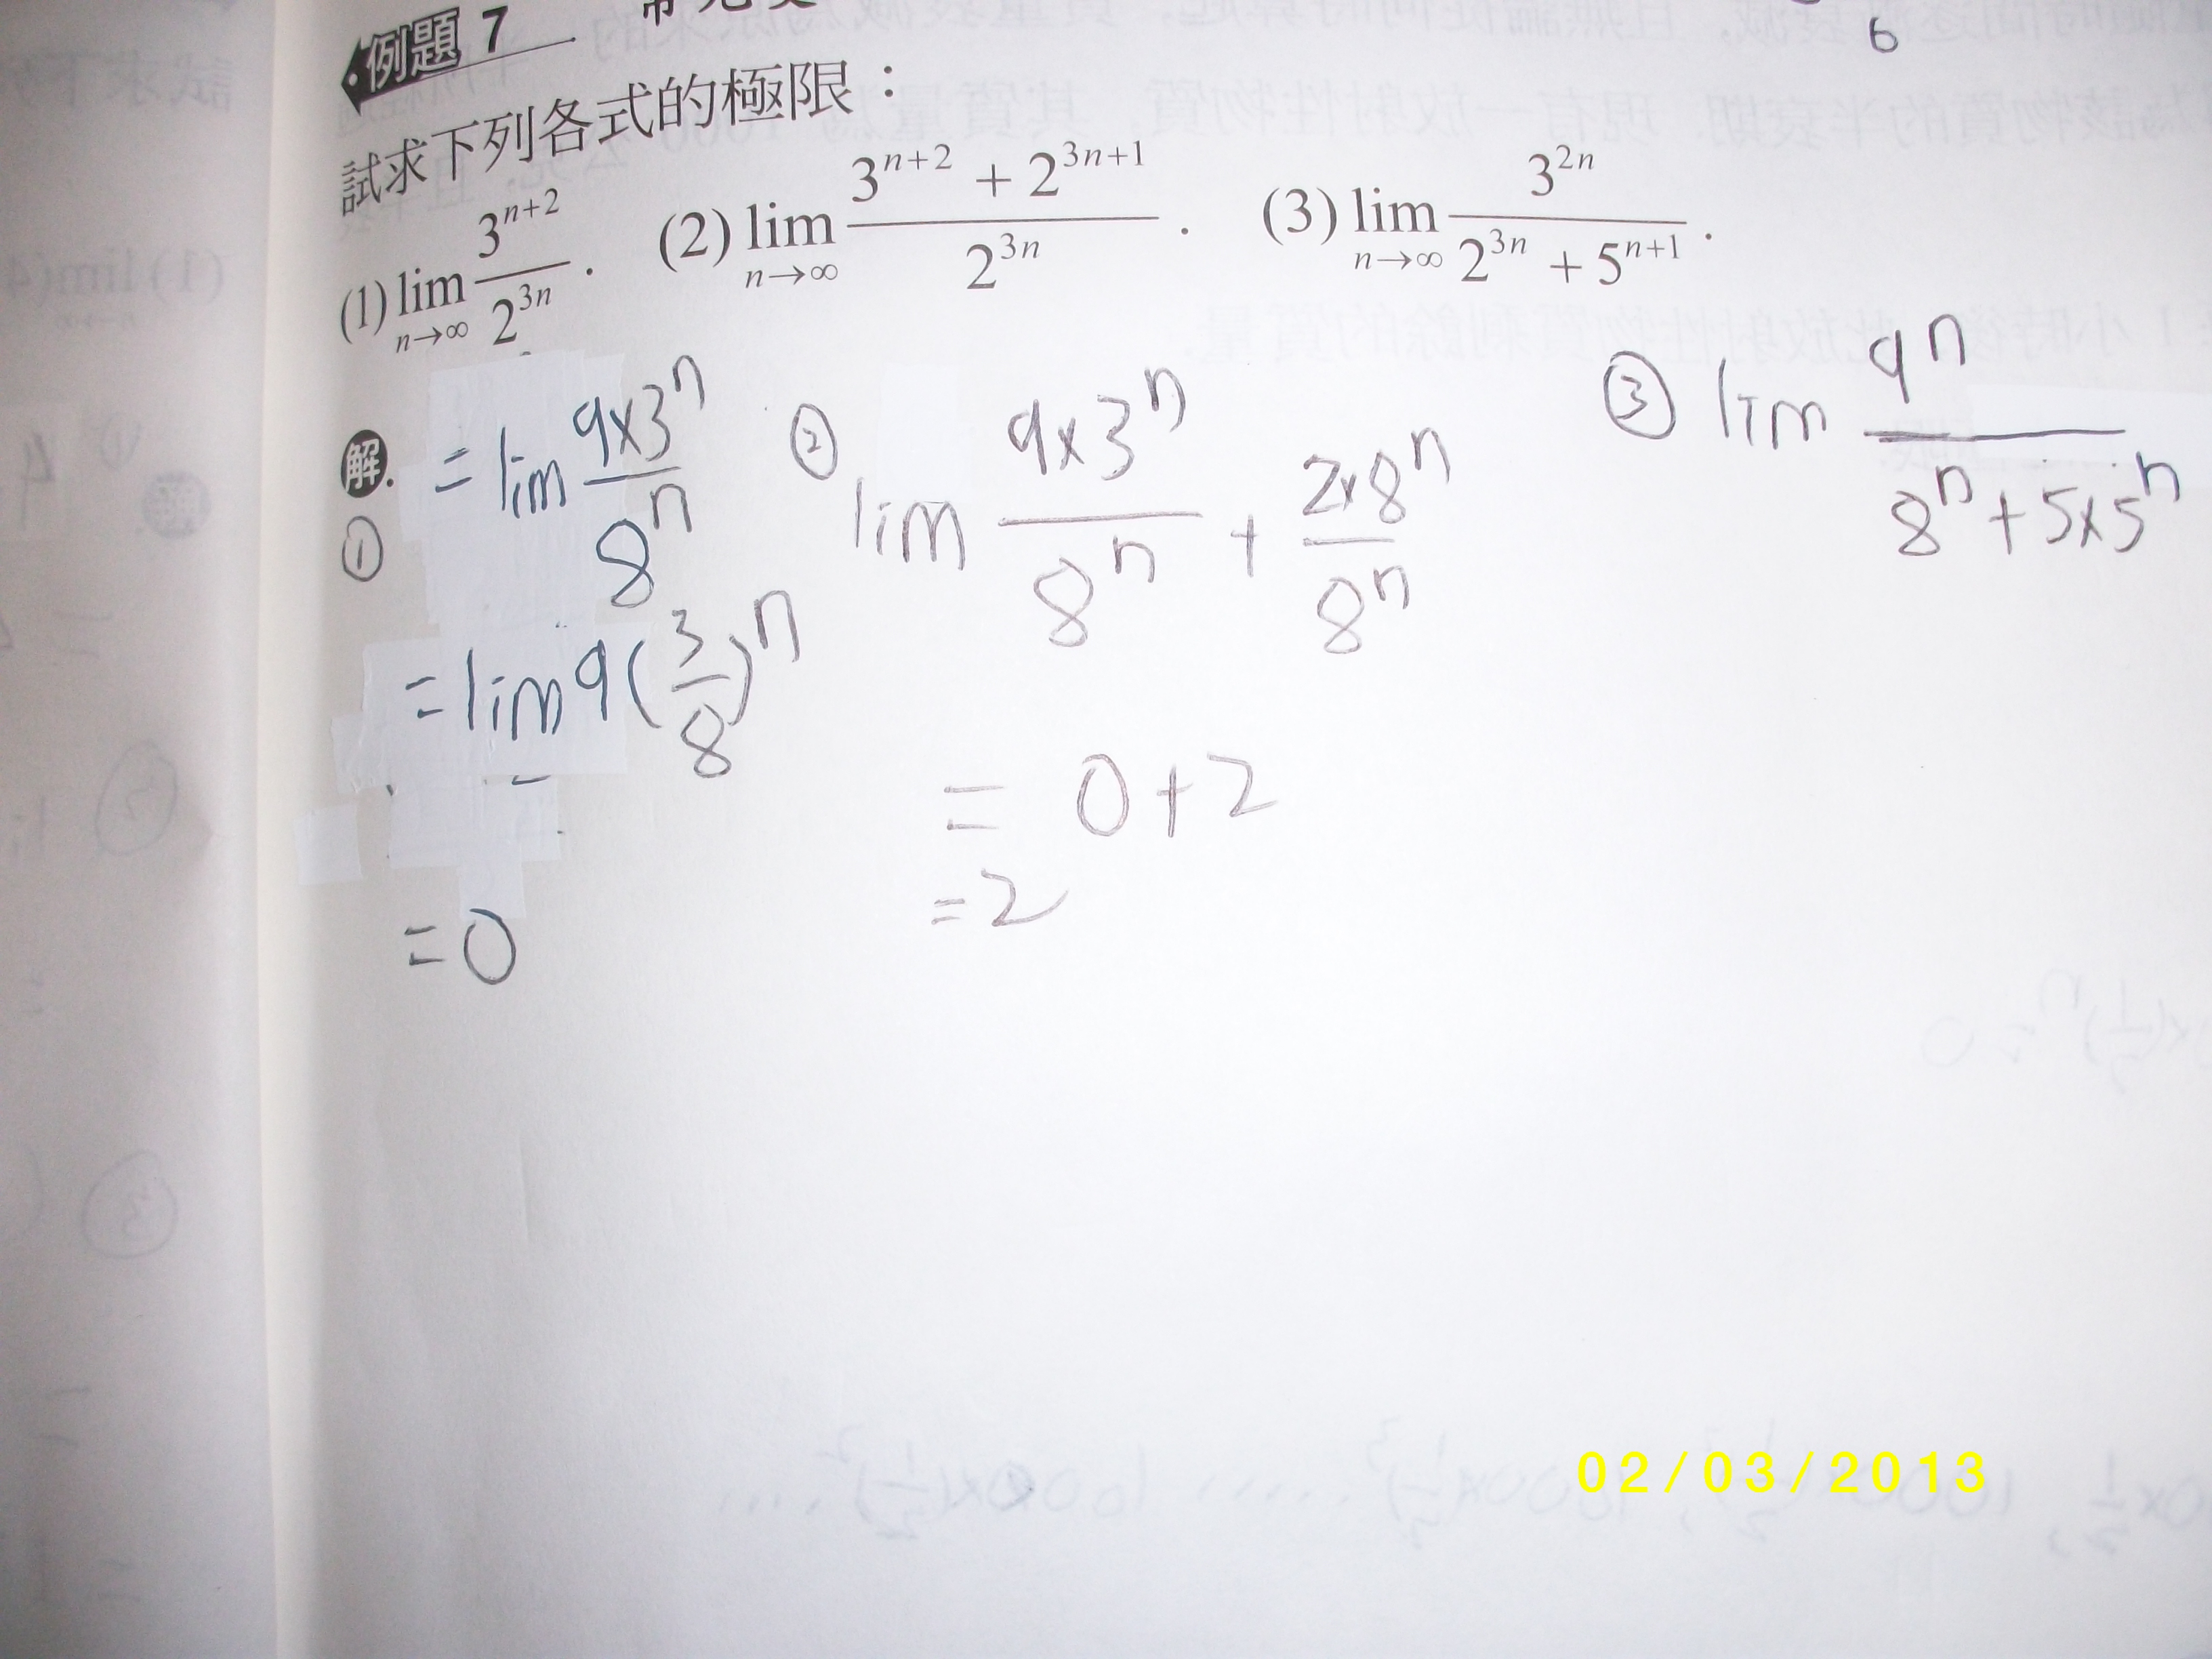 例題 7
6
試求下列各式的極限：
(1) lim_{n→∞} 3^{n+2} / 2^{3n} . (2) lim_{n→∞} (3^{n+2} + 2^{3n+1}) / 2^{3n} . (3) lim_{n→∞} 3^{2n} / (2^{3n} + 5^{n+1}) .
解.
① = lim 9×3^n / 8^n
= lim 9(3/8)^n
= 0
② lim 9×3^n / 8^n + 2×8^n / 8^n
= 0+2
= 2
③ lim 9^n / (8^n + 5×5^n)
02/03/2013